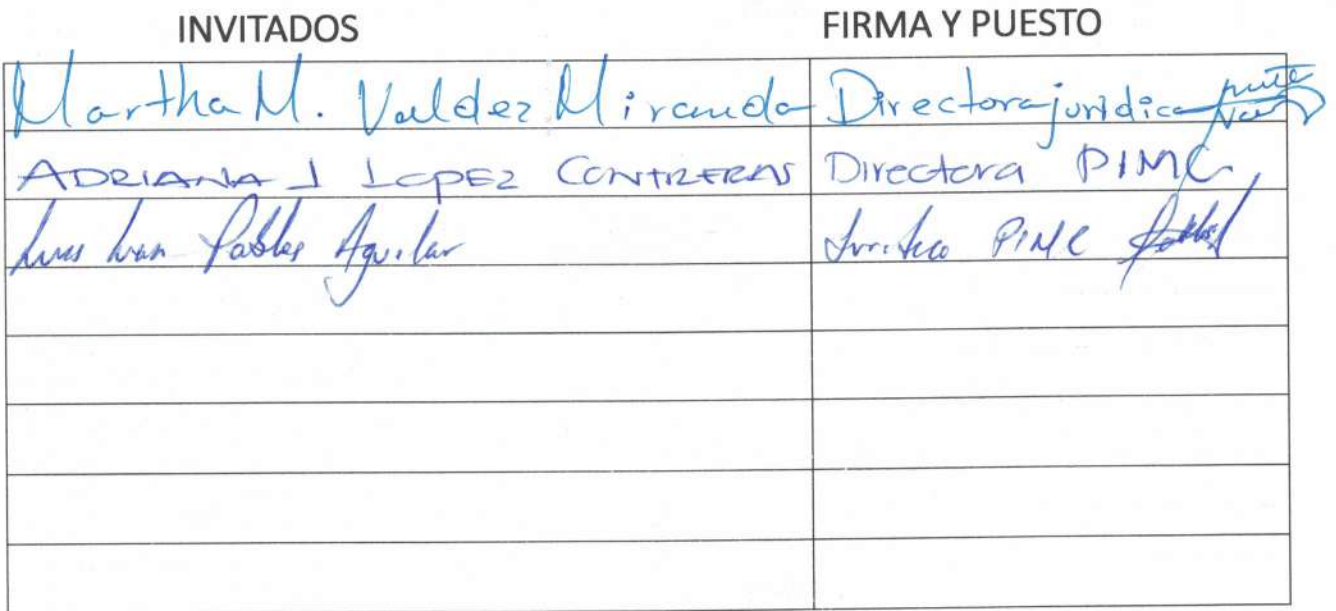 INVITADOS FIRMA Y PUESTO
Martha M. Valdez Miranda Directora juridica
ADRIANA J LOPEZ CONTRERAS Directora PIMC
Luis Ivan Pablos Aguilar Juridico PIMC